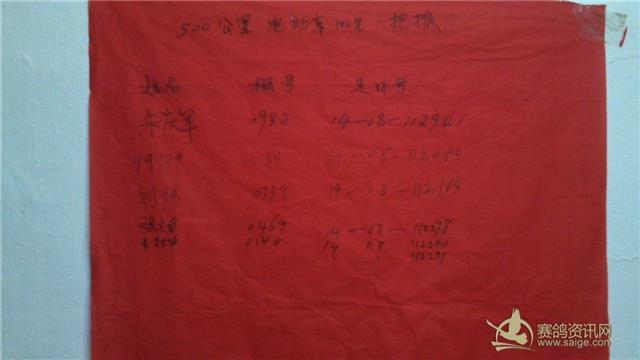 500公里 电动车 100元 一把抓
姓名 棚号 足环号
朱庆军 0982 14-08-112941
14-08-112083
刘伟 0739 14-08-112169
0469 14-08-112298
0740 14 08 112240
112231
赛鸽资讯网
www.saige.com